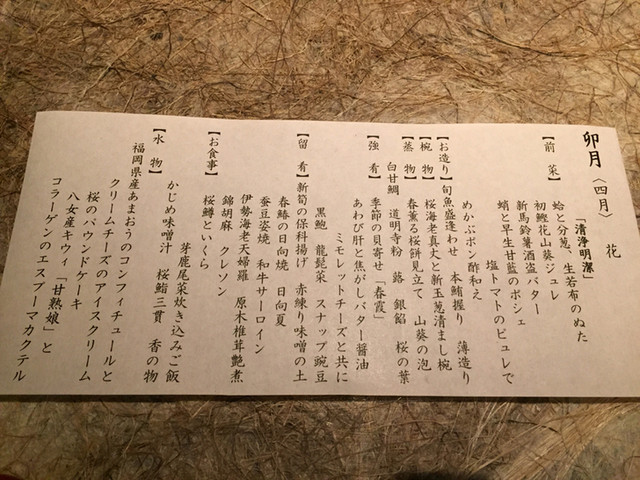 卯月〈四月〉 花
「清浄明潔」
【前 菜】 蛤と分葱、生若布のぬた
初鰹花山葵ジュレ
新馬鈴薯酒盗バター
蛸と早生甘藍のポシェ
塩トマトのピュレで
めかぶポン酢和え
【お造り】旬魚盛逢わせ 本鮪握り 薄造り
【椀 物】桜海老真丈と新玉葱清まし椀
【蒸 物】春薫る桜餅見立て 山葵の泡
白甘鯛 道明寺粉 蕗 銀餡 桜の葉
【強 肴】季節の貝寄せ「春霞」
あわび肝と焦がしバター醤油
ミモレットチーズと共に
黒鮑 龍髭菜 スナップ豌豆
【留 肴】新筍の保科揚げ 赤練り味噌の土
春鰆の日向焼 日向夏
蚕豆姿焼 和牛サーロイン
伊勢海老天婦羅 原木椎茸艶煮
錦胡麻 クレソン
【お食事】 桜鱒といくら
芽鹿尾菜炊き込みご飯
かじめ味噌汁 桜鮨三貫 香の物
【水 物】
福岡県産あまおうのコンフィチュールと
クリームチーズのアイスクリーム
桜のパウンドケーキ
八女産キウィ「甘熟娘」と
コラーゲンのエスプーマカクテル